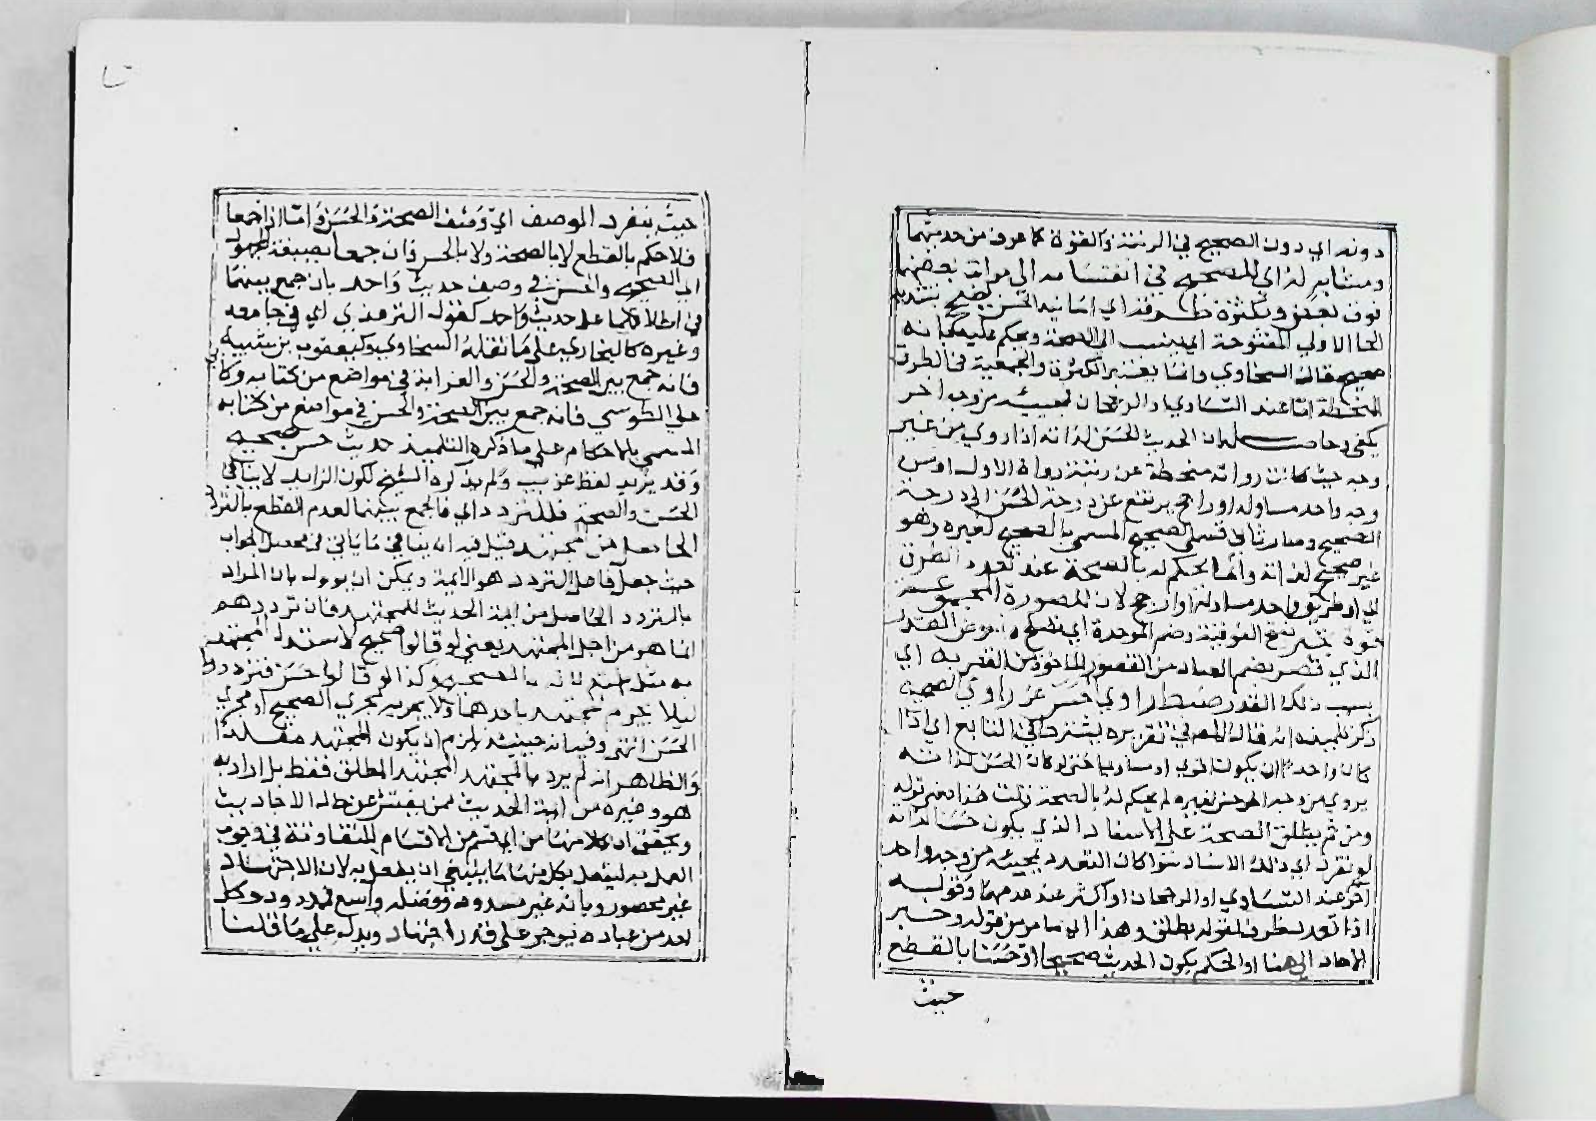 دونه اي دون الصحيح في الرتبة والقوة كما عرف من حديثهما
ومشابه له اي للصحيح في انقسامه الي مراتب بعضها
فوق بعض وبكثرة طرقه اي اسانيد الحسن يصحح بتشديد
الحا الاولي المفتوحة اي ينسب الي الصحة ويحكم عليه بانه
صحيح قال السخاوي وانما يعتبر الكثرة والجمعية في الطرق
المنحطة اما عند التساوي او الرجحان فمجيئه من وجه اخر
يكفي وحاصله ان الحديث الحسن لذاته اذا روي من غير
وجه حيث كانت رواته منحطة عن رتبة رواة الاول او من
وجه واحد مساو له او راجح يرتفع عن درجة الحسن الي درجة
الصحيح وصار ثاني قسمي الصحيح المسمي بالصحيح لغيره وهو
غير صحيح لذاته وانما الحكم له بالصحة عند تعدد الطرق
او طريق واحد مساو له او راجح لان للصورة المجموعة
قوة تجبر بفتح الفوقية وضم الموحدة اي تصلح وتعوض القدر
الذي قصر بضم الصاد من القصور الماخوذ من القصر به اي
بسبب ذلك القدر ضبط راوي حسن عن راوي الصحيح
ذكر تلميذه انه قال المص في تقريره يشترط في التابع اي اذا
كان واحدا ان يكون اقوي او مساويا حتي لو كان الحسن لذاته
يروي من وجه اخر حسن لغيره لم يحكم له بالصحة قلت هذا من قوله
ومن ثم يطلق الصحة علي الاسناد الذي يكون حسنا لذاته
لو تفرد اي ذلك الاسناد سوا كان التعدد بمجيئه من وجه واحد
اخر عند التساوي او الرجحان او اكثر عند عدمهما وقوله
اذا تعدد ظرف لقوله يطلق وهذا اي ما مر من قوله وخبر
الاحاد الي هنا او الحكم بكون الحديث صحيحا او حسنا بالقطع
حيث
حيث ينفرد الوصف اي وصف الصحة والحسن واما اذا جمعا
فلا حكم بالقطع لا بالصحة ولا بالحسن فان جمعا بصيغة المجهول
اي الصحيح والحسن في وصف حديث واحد بان جمع بينهما
في اطلاقهما علي حديث واحد كقول الترمذي اي في جامعه
وغيره كالبخاري علي ما نقله السخاوي وكيعقوب بن شيبة
فانه جمع بين الصحة والحسن والغرابة في مواضع من كتابه وكابي
علي الطوسي فانه جمع بين الصحة والحسن في مواضع من كتابه
المسمي بالاحكام علي ما ذكره التلميذ حديث حسن صحيح
وقد يزيد لفظ غريب ولم يذكره الشيخ لكون الزايد لا ينافي
الحسن والصحة فللتردد اي فالجمع بينهما لعدم القطع بالتردد
الحاصل من مجتهد قيل فيه انه ينافي ما ياتي في محصل الجواب
حيث جعل فاعل التردد هو الايمة ويمكن ان يوول بان المراد
بالتردد الحاصل من ايمة الحديث للمجتهد فان ترددهم
انما هو من اجل المجتهد يعني لو قالوا صحيح لاستدل المجتهد
به مثل جزم لانه بالصحيح وكذا لو قالوا حسن فترددوا
ليلا يجزم مجتهد باحدهما ولا يجريه مجري الصحيح او مجري
الحسن انتهي وفيه انه حينئذ يلزم ان يكون المجتهد مقلدا
والظاهر انه لم يرد بالمجتهد المجتهد المطلق فقط بل اراد به
هو وغيره من ايمة الحديث ممن يفتش عن حال الاحاديث
ويحقق ان كلا منها من اي قسم من الاقسام المتفاوتة في وجوب
العمل به ليفعل بكل منها ما ينبغي ان يفعل به لان الاجتهاد
غير محصور وبابه غير مسدود وفضله واسع ممدود وكل
احد من عباده يوجر علي قدر اجتهاد ويدل علي ما قلنا